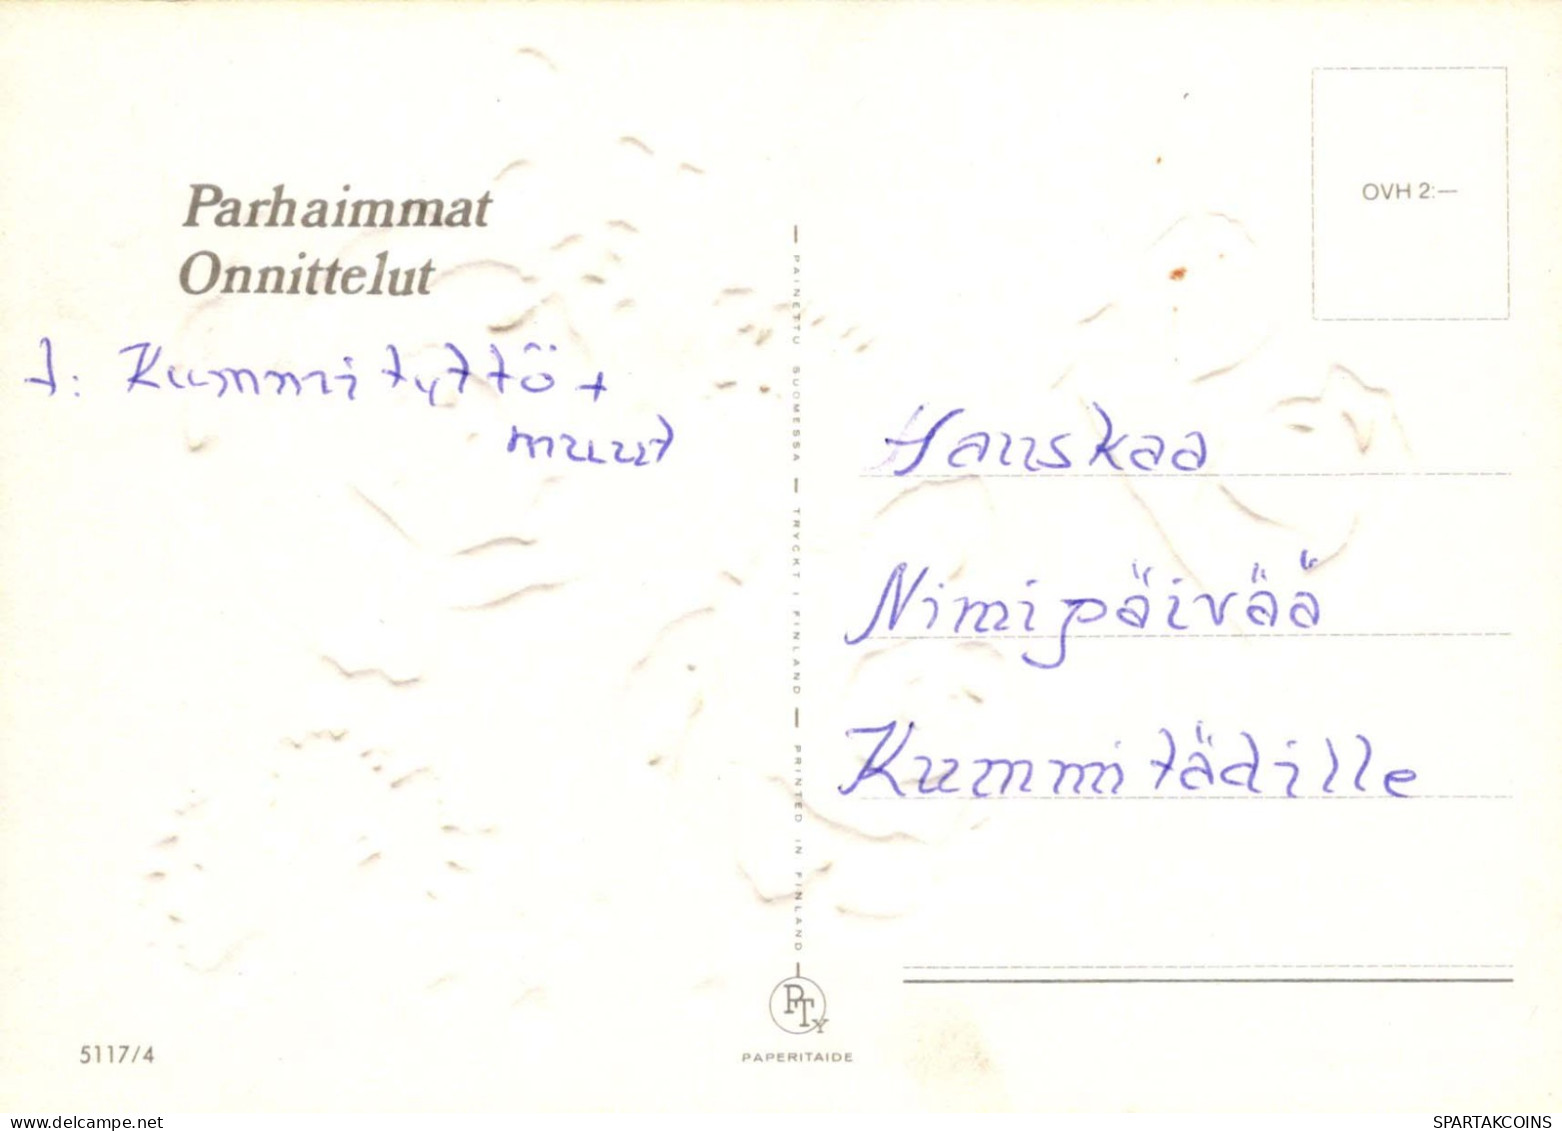 Parhaimmat
Onnittelut
t: Kummityttö +
muut
OVH 2:—
Hauskaa
Nimipäivää
Kummitädille
PAINETTU SUOMESSA — TRYCKT I FINLAND — PRINTED IN FINLAND
PTy
PAPERITAIDE
5117/4
www.delcampe.net
SPARTAKCOINS